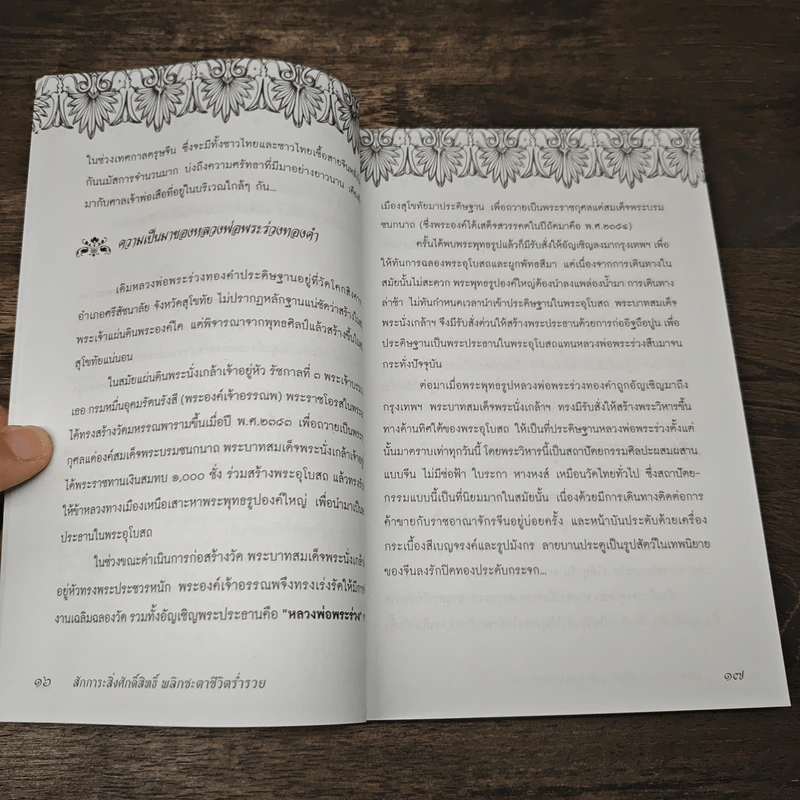 ในช่วงเทศกาลตรุษจีน ซึ่งจะมีทั้งชาวไทยและชาวไทยเชื้อสายจีน
กันนมัสการจำนวนมาก บ่งถึงความศรัทธาที่มีมาอย่างยาวนาน
มากับศาลเจ้าพ่อเสือที่อยู่ในบริเวณใกล้ๆ กัน...
ความเป็นมาของหลวงพ่อพระร่วงทองคำ
เดิมหลวงพ่อพระร่วงทองคำประดิษฐานอยู่ที่วัดโคกสิงคาราม
อำเภอศรีสัชนาลัย จังหวัดสุโขทัย ไม่ปรากฏหลักฐานแน่ชัดว่าสร้างใน
พระเจ้าแผ่นดินพระองค์ใด แต่พิจารณาจากพุทธศิลป์แล้วสร้างขึ้นใน
สุโขทัยแน่นอน
ในสมัยแผ่นดินพระนั่งเกล้าเจ้าอยู่หัว รัชกาลที่ ๓ พระเจ้าบรม
เธอ กรมหมื่นอุดมรัตนรังสี (พระองค์เจ้าอรรณพ) พระราชโอรสใน
ได้ทรงสร้างวัดมหรรณพารามขึ้นเมื่อปี พ.ศ.๒๓๙๓ เพื่อถวายเป็น
กุศลแด่องค์สมเด็จพระบรมชนกนาถ พระบาทสมเด็จพระนั่งเกล้าเจ้าอยู่
ได้พระราชทานเงินสมทบ ๑,๐๐๐ ชั่ง ร่วมสร้างพระอุโบสถ แล้วทรง
ให้ข้าหลวงทางเมืองเหนือเสาะหาพระพุทธรูปองค์ใหญ่ เพื่อนำมาเป็น
ประธานในพระอุโบสถ
ในช่วงขณะดำเนินการก่อสร้างวัด พระบาทสมเด็จพระนั่งเกล้า
อยู่หัวทรงพระประชวรหนัก พระองค์เจ้าอรรณพจึงทรงเร่งรัดให้มีการ
งานเฉลิมฉลองวัด รวมทั้งอัญเชิญพระประธานคือ "หลวงพ่อพระร่วง"
๑๖ สักการะสิ่งศักดิ์สิทธิ์ พลิกชะตาชีวิตร่ำรวย
เมืองสุโขทัยมาประดิษฐาน เพื่อถวายเป็นพระราชกุศลแด่สมเด็จพระบรม
ชนกนาถ (ซึ่งพระองค์ได้เสด็จสวรรคตในปีถัดมาคือ พ.ศ.๒๓๙๔)
ครั้นได้พบพระพุทธรูปแล้วก็มีรับสั่งให้อัญเชิญลงมากรุงเทพฯ เพื่อ
ให้ทันการฉลองพระอุโบสถและผูกพัทธสีมา แต่เนื่องจากการเดินทางใน
สมัยนั้นไม่สะดวก พระพุทธรูปองค์ใหญ่ต้องนำลงแพล่องน้ำมา การเดินทาง
ล่าช้า ไม่ทันกำหนดเวลานำเข้าประดิษฐานในพระอุโบสถ พระบาทสมเด็จ
พระนั่งเกล้าฯ จึงมีรับสั่งด่วนให้สร้างพระประธานด้วยการก่ออิฐถือปูน เพื่อ
ประดิษฐานเป็นพระประธานในพระอุโบสถแทนหลวงพ่อพระร่วงสืบมาจน
กระทั่งปัจจุบัน
ต่อมาเมื่อพระพุทธรูปหลวงพ่อพระร่วงทองคำถูกอัญเชิญมาถึง
กรุงเทพฯ พระบาทสมเด็จพระนั่งเกล้าฯ ทรงมีรับสั่งให้สร้างพระวิหารขึ้น
ทางด้านทิศใต้ของพระอุโบสถ ให้เป็นที่ประดิษฐานหลวงพ่อพระร่วงตั้งแต่
นั้นมาตราบเท่าทุกวันนี้ โดยพระวิหารนี้เป็นสถาปัตยกรรมศิลปะผสมผสาน
แบบจีน ไม่มีช่อฟ้า ใบระกา หางหงส์ เหมือนวัดไทยทั่วไป ซึ่งสถาปัตย-
กรรมแบบนี้เป็นที่นิยมมากในสมัยนั้น เนื่องด้วยมีการเดินทางติดต่อการ
ค้าขายกับราชอาณาจักรจีนอยู่บ่อยครั้ง และหน้าบันประดับด้วยเครื่อง
กระเบื้องสีเบญจรงค์และรูปมังกร ลายบานประตูเป็นรูปสัตว์ในเทพนิยาย
ของจีนลงรักปิดทองประดับกระจก...
๑๗